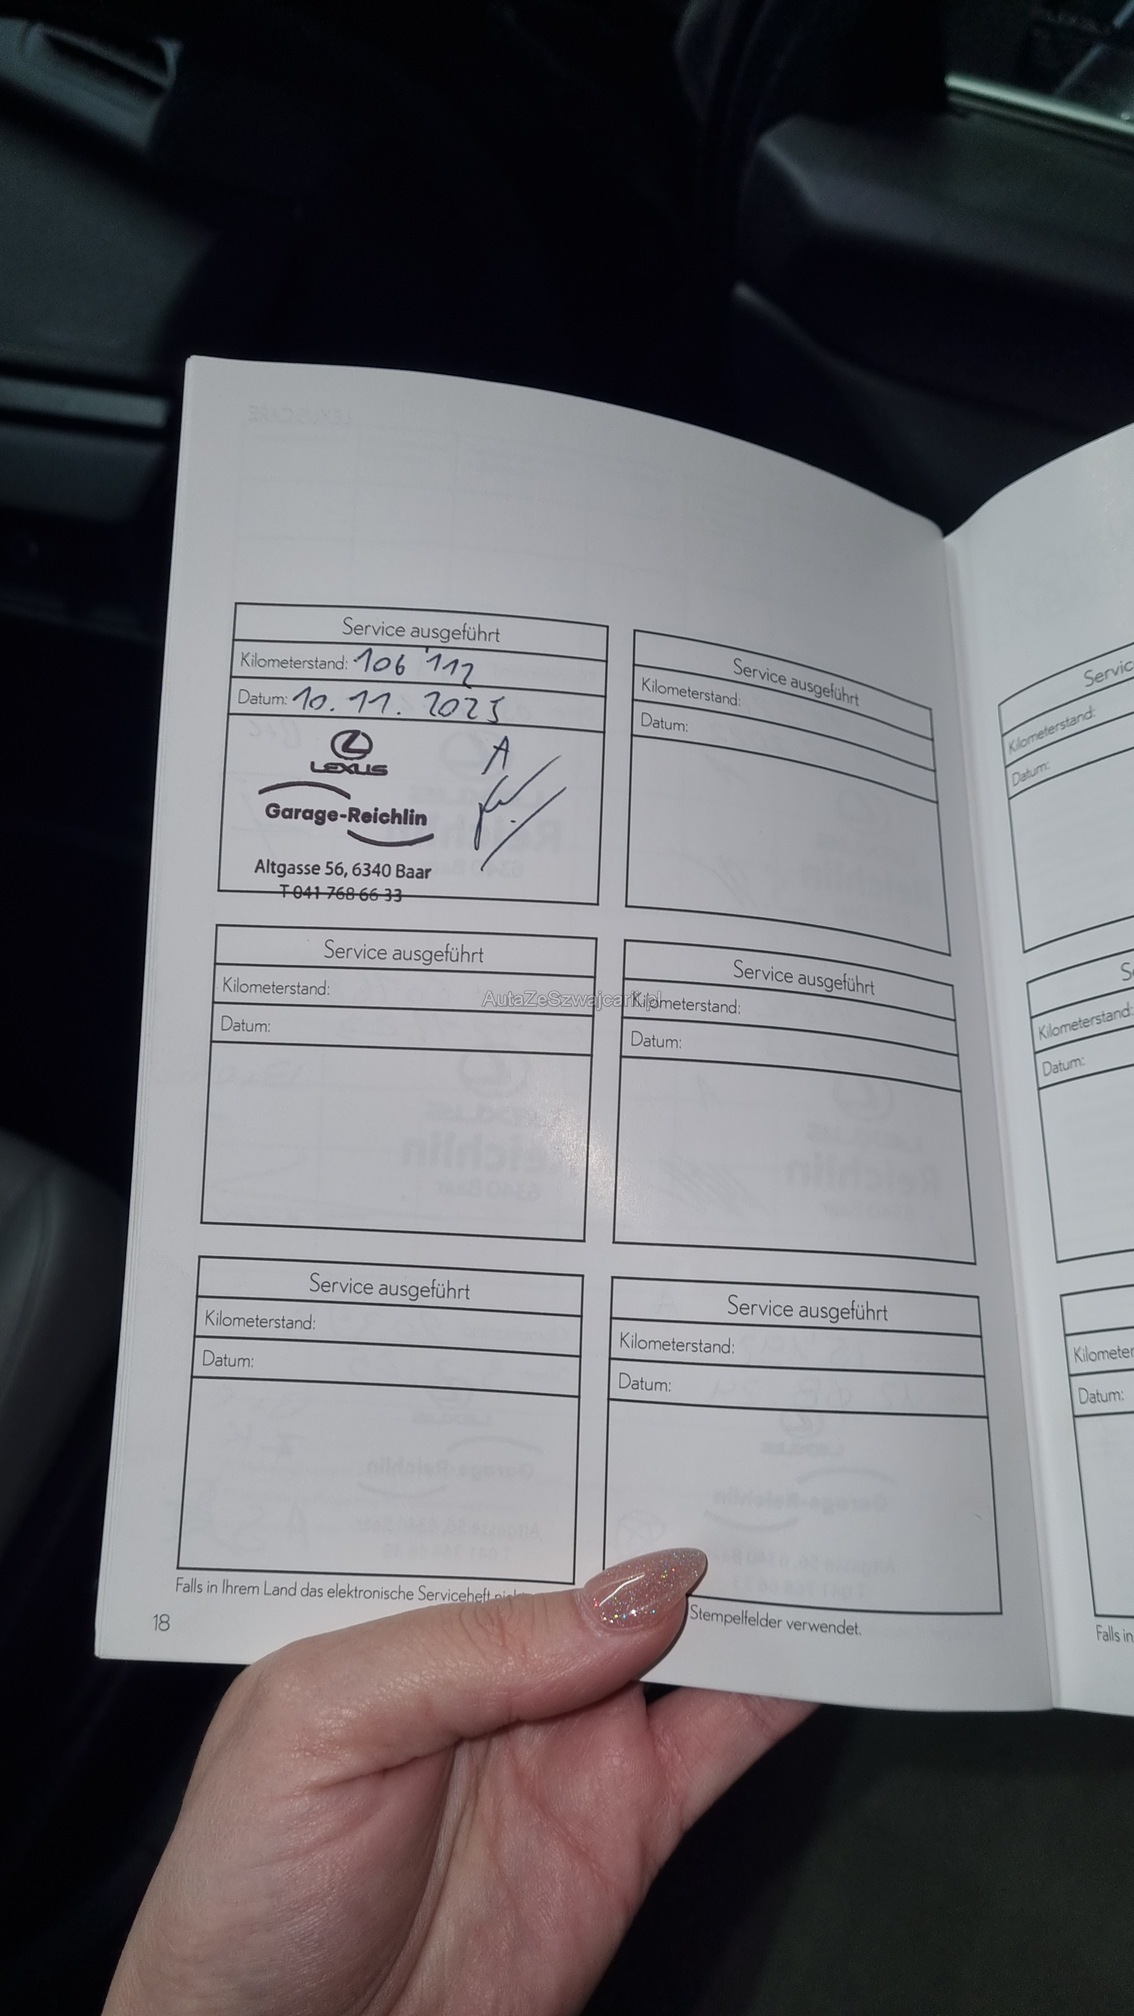 Service ausgeführt
Kilometerstand: 106'112
Datum: 10.11.2025
A
LEXUS
Garage-Reichlin
Altgasse 56, 6340 Baar
T 041 768 66 33
Service ausgeführt
Kilometerstand:
Datum:
Service ausgeführt
Kilometerstand:
Datum:
AutaZeSzwajcarii.pl
Service ausgeführt
Kilometerstand:
Datum:
Service ausgeführt
Kilometerstand:
Datum:
Service ausgeführt
Kilometerstand:
Datum:
Falls in Ihrem Land das elektronische Serviceheft
Stempelfelder verwendet.
18
Kilometerstand:
Datum:
Kilometerstand:
Datum:
Datum:
Falls in